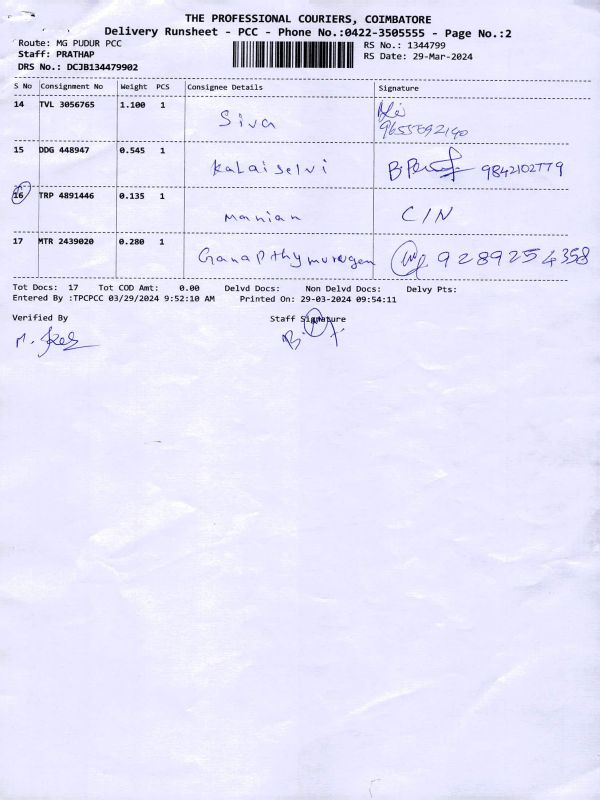 THE PROFESSIONAL COURIERS, COIMBATORE
Delivery Runsheet - PCC - Phone No.:0422-3505555 - Page No.:2
Route: MG PUDUR PCC
Staff: PRATHAP
DRS No.: DCJB134479902
RS No.: 1344799
RS Date: 29-Mar-2024
S No Consignment No Weight PCS Consignee Details Signature
14 TVL 3056765 1.100 1 Siva
15 DDG 448947 0.545 1 Kalaiselvi 9842102779
16 TRP 4891446 0.135 1 Manian C/N
17 MTR 2439020 0.280 1 Ganapthymurugen 9289254358
Tot Docs: 17 Tot COD Amt: 0.00 Delvd Docs: Non Delvd Docs: Delvy Pts:
Entered By :TPCPCC 03/29/2024 9:52:10 AM Printed On: 29-03-2024 09:54:11
Verified By Staff Signature